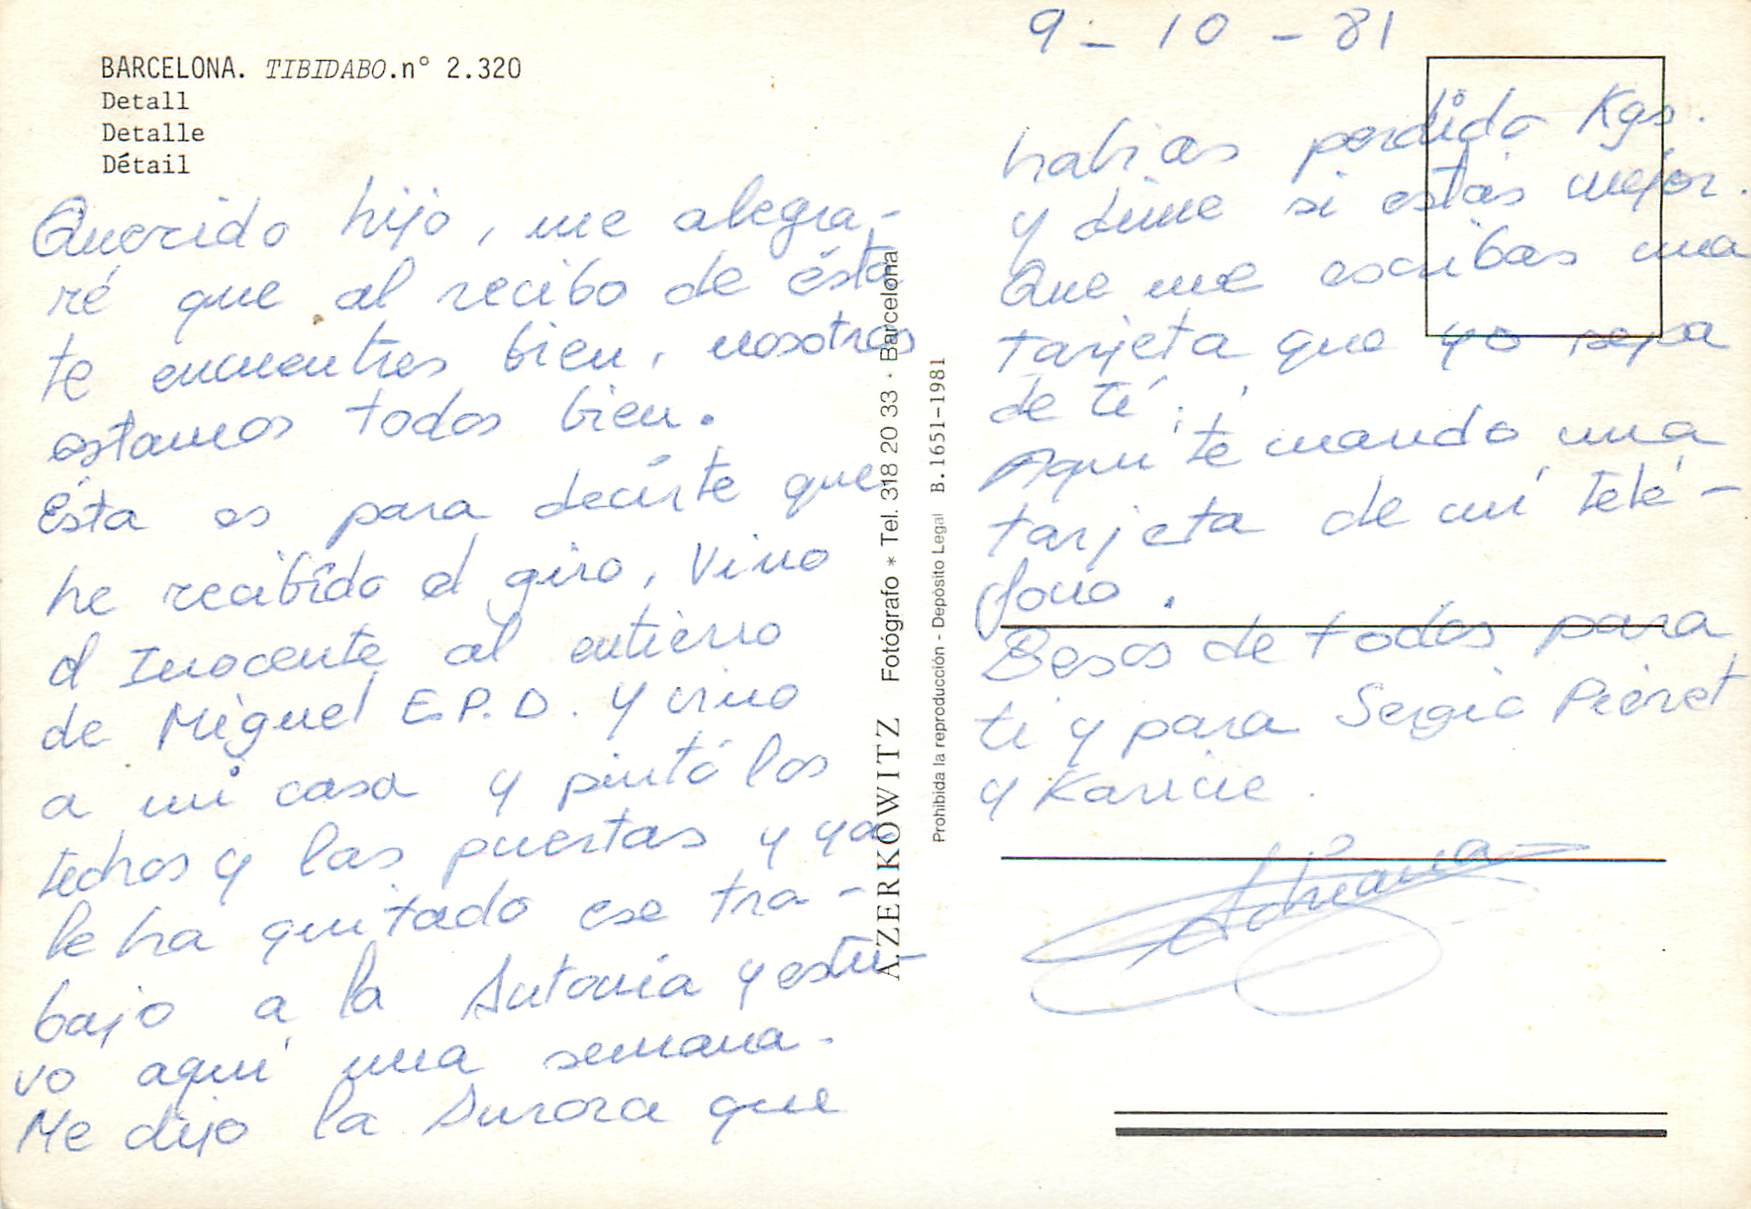 BARCELONA. TIBIDABO.nº 2.320
Detall
Detalle
Détail
Querido hijo, me alegra-
ré que al recibo de ésta
te encuentres bien, nosotros
estamos todos bien.
Ésta es para decirte que
he recibido el giro, Vino
el Inocente al entierro
de Miguel E.P.D. y vino
a mi casa y pintó los
techos y las puertas y ya
le ha quitado ese tra-
bajo a la Antonia y estu-
vo aquí una semana.
Me dijo la Aurora que
A. ZERKOWITZ Fotógrafo * Tel. 318 20 33 · Barcelona
Prohibida la reproducción - Depósito Legal B. 1651-1981
9 - 10 - 81
habias perdido Kgs.
y dime si estás mejor.
Que me escribas una
tarjeta que yo sepa
de tí.
Aquí te mando una
tarjeta de mi telé-
fono.
Besos de todos para
ti y para Sergio Pieret
y Karine.
Adriana